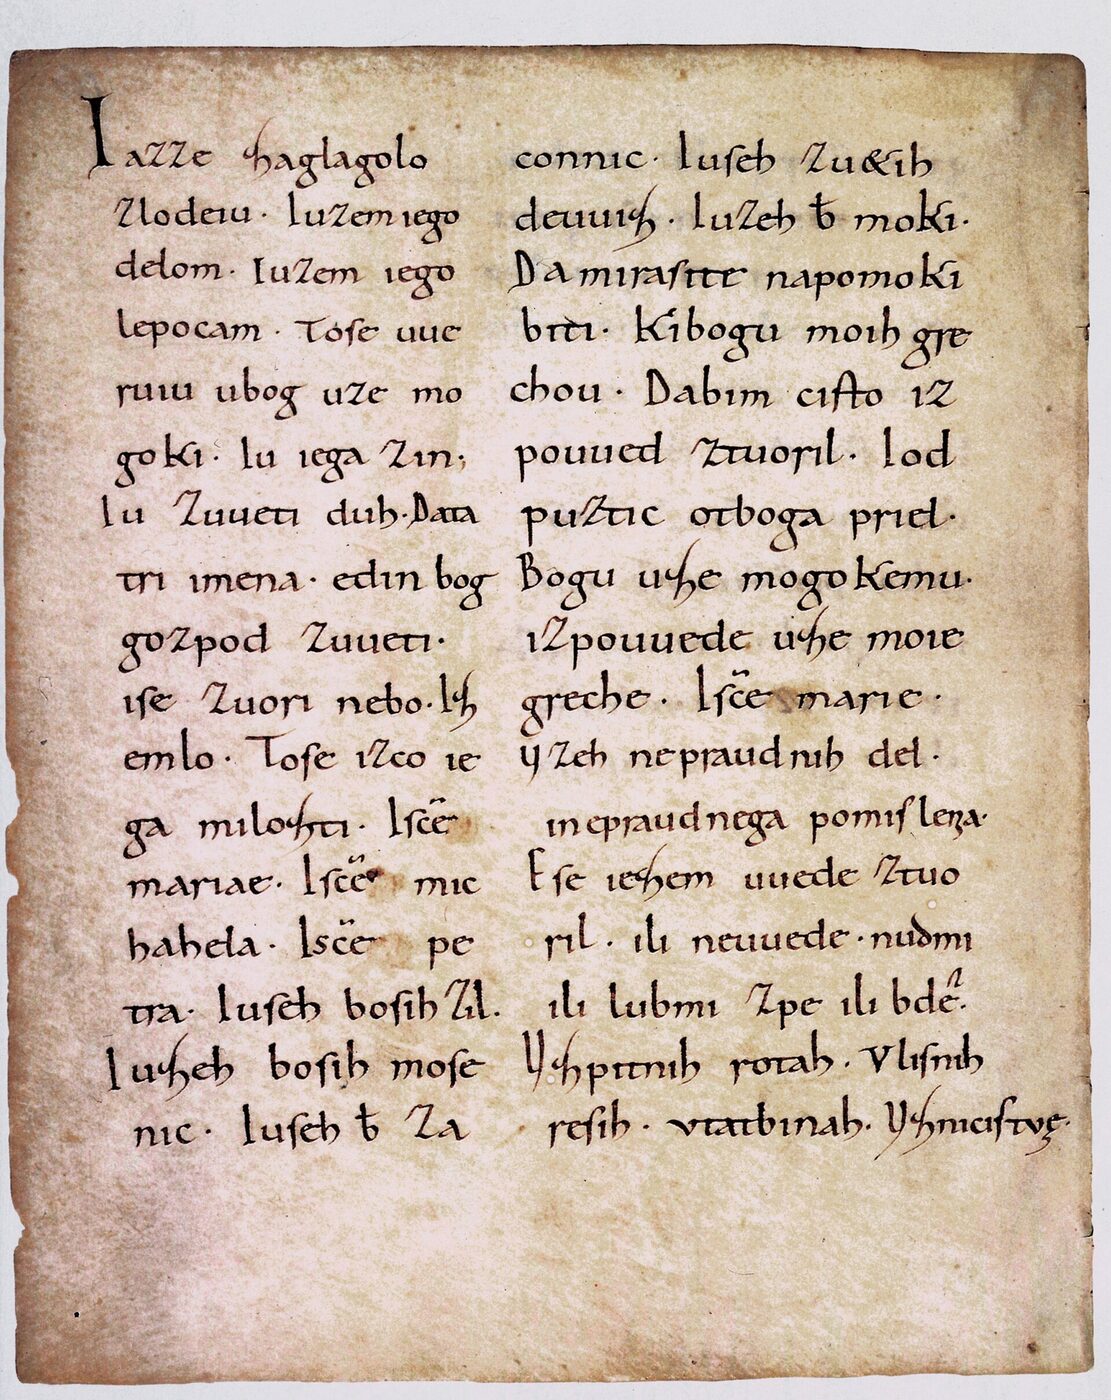 Iazze zaglagolo
Zlodeiu· Iuzem iego
delom· Iuzem iego
lepocam· Tose uue
ruiu ubog uze mo
goki· Iu iega Zin;
Iu Zuueti duh· Data
tri imena· edin bog
gozpod Zuueti·
ise Zuori nebo· Iz
emlo· Tose izco ie
ga milozti· Isc̄e
mariae· Isc̄e mic
hahela· Isc̄e pe
tra· Iuseh bosih Zil·
Iuzeh bosih mose
nic· Iuseh b̄ Za
connic· Iuseh Zu&ih
deuuiz· Iuzeh b̄ moki·
Da mi rasite napomoki
biti· Kibogu moih gre
chou· Dabim cisto iz
pouued ztuoril· Iod
puztic otboga priel·
Bogu uze mogokemu·
izpouuede uze moie
greche· Isc̄e marie·
Yzeh nepraudnih del·
inepraudnega pomislenza·
Ese iezem uuede Ztuo
ril· ili neuuede· nudmi
ili lubmi Zpe ili bde·
Yzpitnih rotah· Vlisnih
resih· vtatbinah· Yznicistvę·